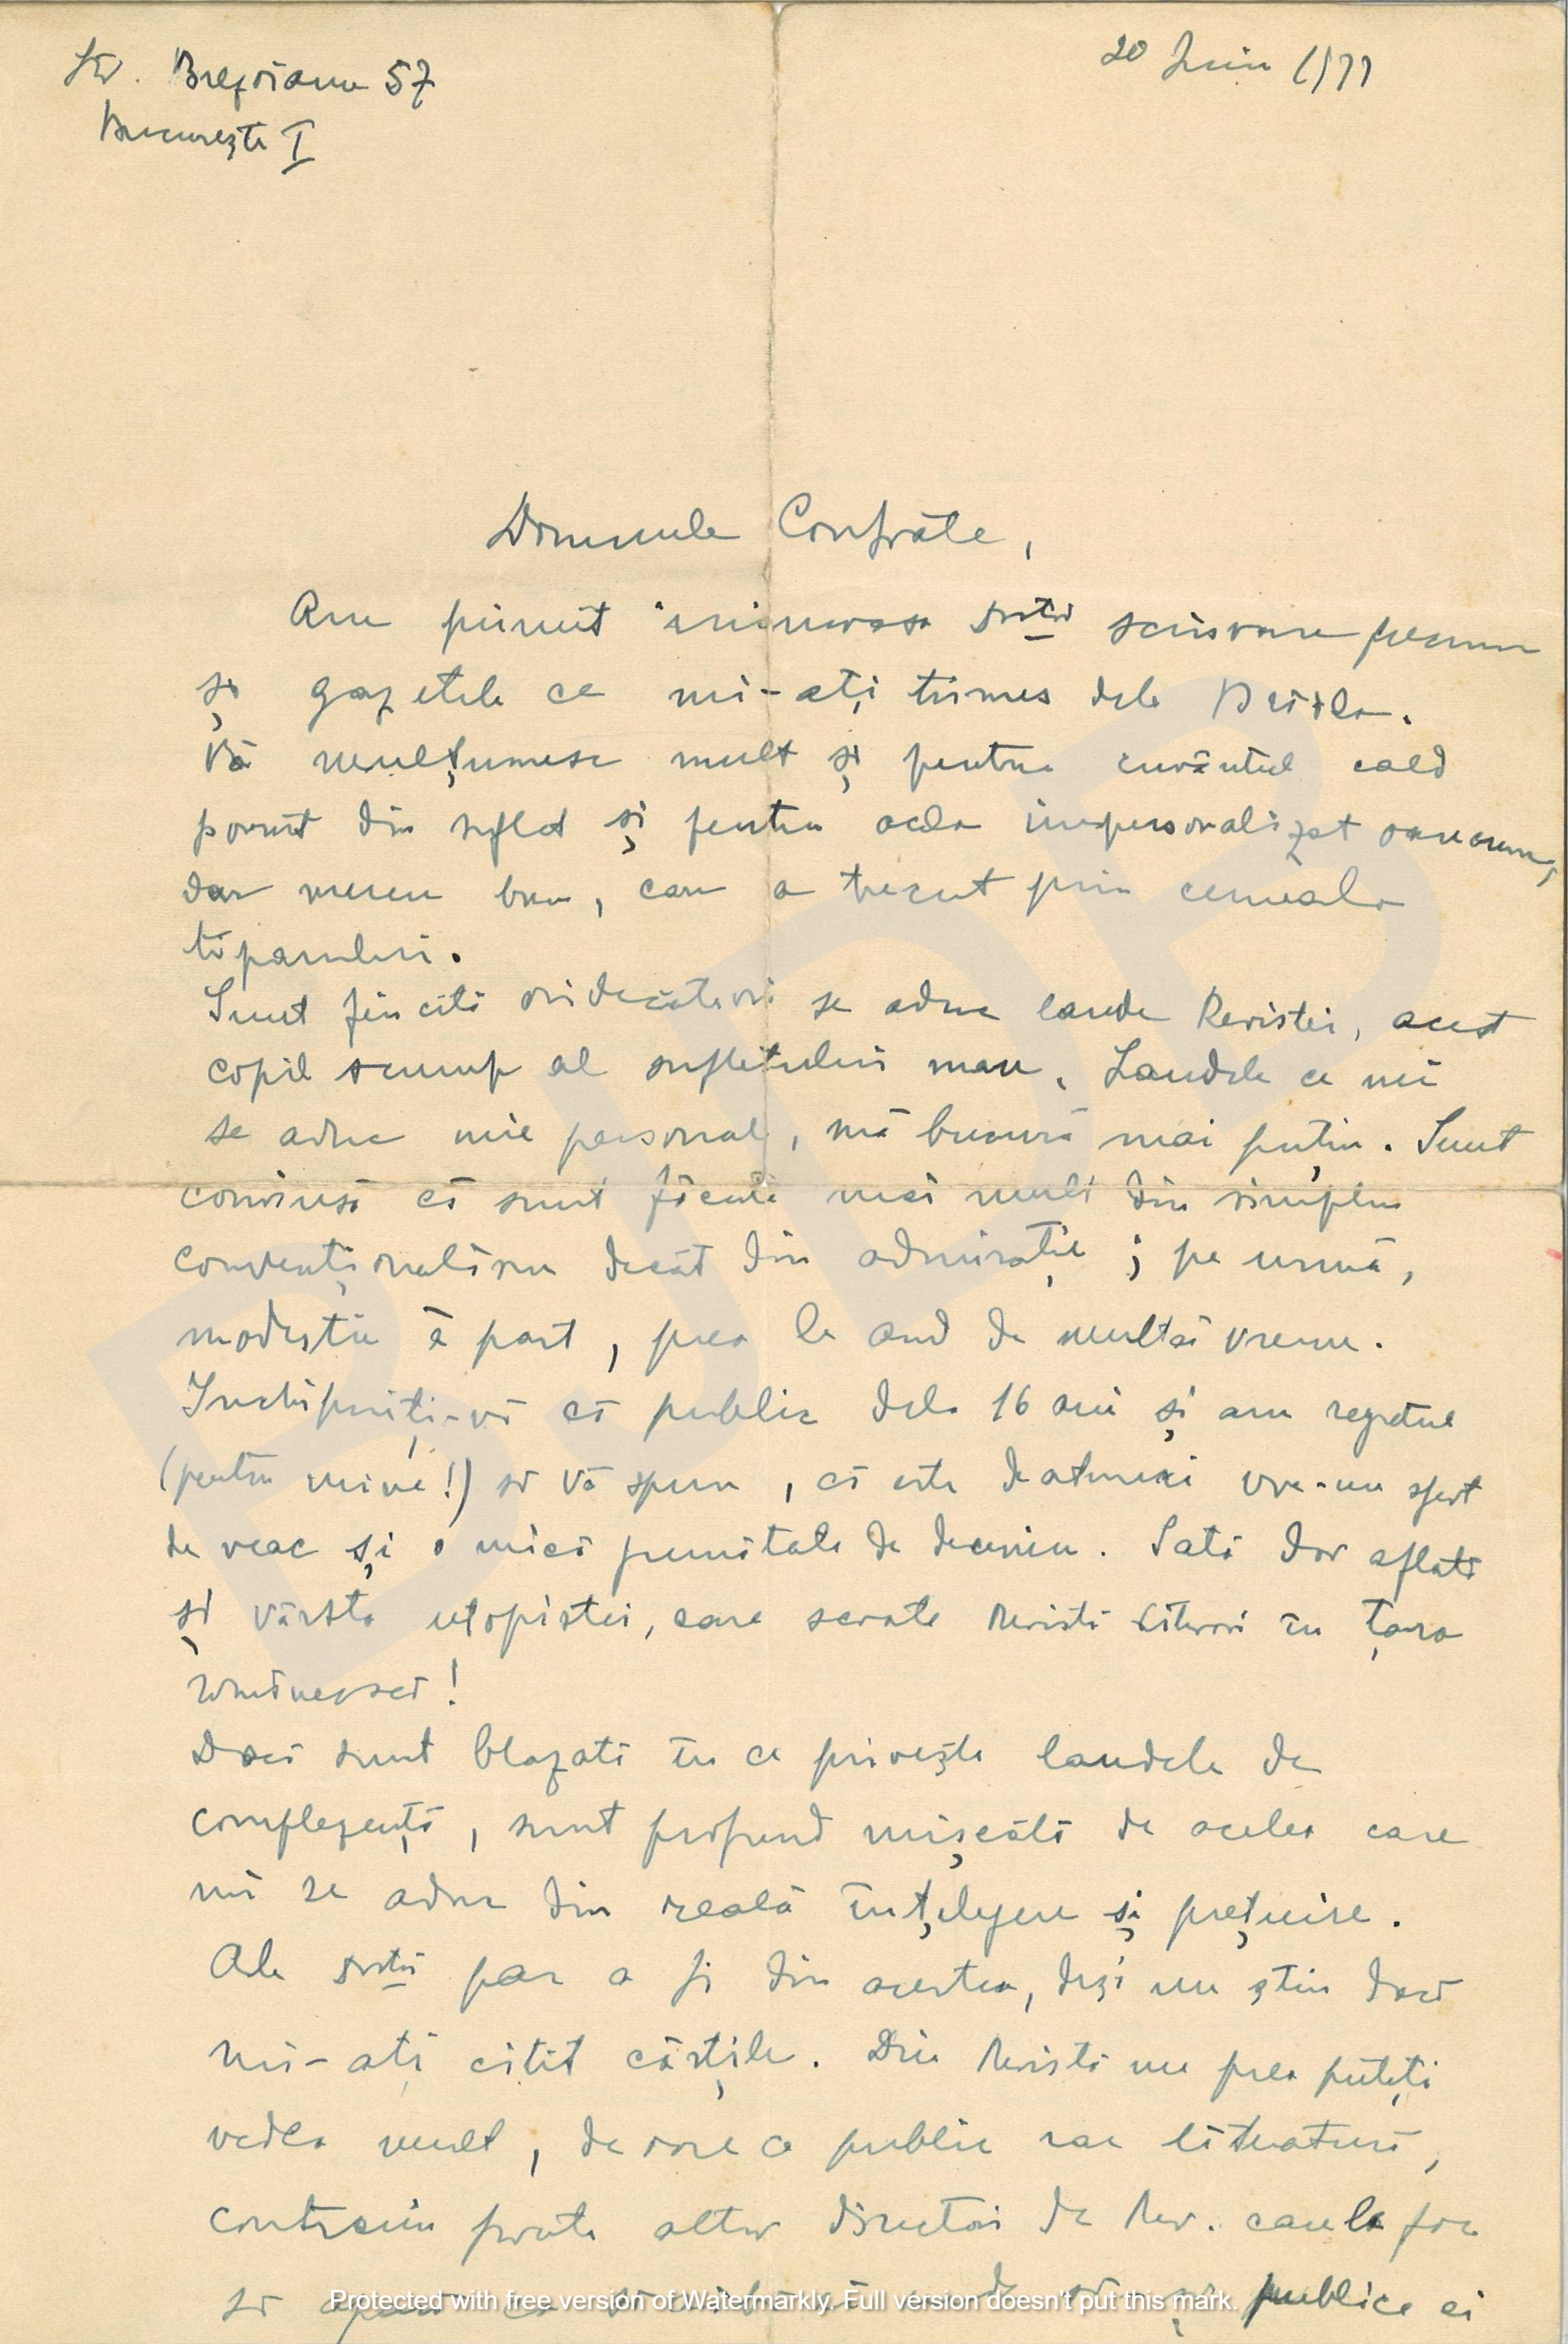 Str. Brezoianu 57
București I
20 Juin 1937
Domnule Confrate,
Am primit inimoasa Dvtră scrisoare precum
și gazetele ce mi-ați trimes dela Brăila.
Vă mulțumesc mult și pentru cuvântul cald
pornit din suflet și pentru acela impersonalizat oarecum,
dar mereu bun, care a trecut prin cerneala
tiparului.
Sunt fericită oridecâteori se aduc laude Revistei, acest
copil scump al sufletului meu. Laudele ce mi
se aduc mie personal, mă bucură mai puțin. Sunt
convinsă că sunt făcute mai mult din simplu
convenționalism decât din admirație; pe urmă,
modestie à part, prea le aud de multă vreme.
Inchipuiți-vă că public dela 16 ani și am regretul
(pentru mine!) să vă spun, că este deatunci vre-un sfert
de veac și o mică jumătate de deceniu. Iată dar aflată
și vârsta utopistei, care scoate revistă literară în țara
românească!
Dacă sunt blazată în ce privește laudele de
complezență, sunt profund mișcată de acelea care
mi se aduc din reală înțelegere și prețuire.
Ale Dvtră par a fi din acestea, deși nu știu dacă
mi-ați citit cărțile. Din Revistă nu prea puteți
vedea mult, de oare ce public rar literatură,
contrariu poate altor directori de Rev. care le fac
să apară ca să publice ei
Protected with free version of Watermarkly. Full version doesn't put this mark.
BJDB